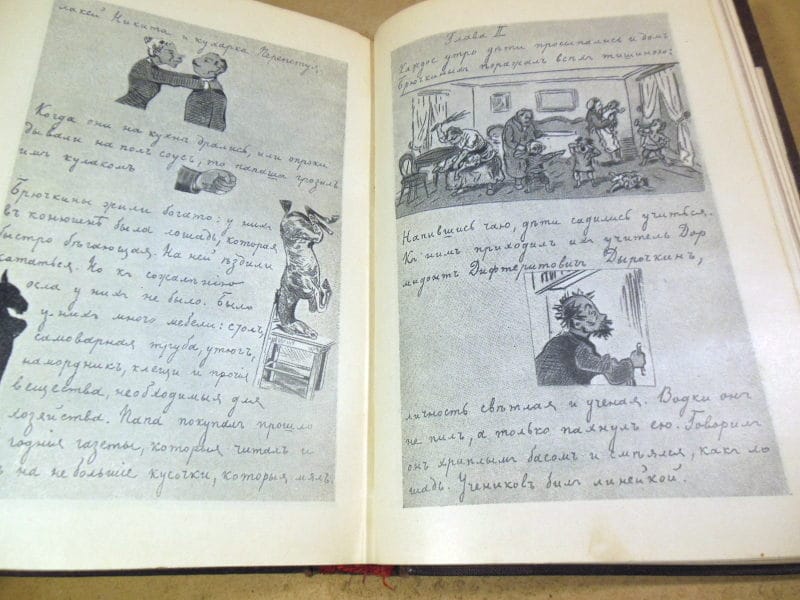 лакей Никита и кухарка Перепетуя.
Когда они на кухнѣ дрались, или опроки
дывали на полъ соусъ, то папаша грозилъ
имъ кулакомъ
Брючкины жили богато: у нихъ
въ конюшнѣ была лошадь, которая
быстро бѣгающая. На ней ѣздили
кататься. Но къ сожалѣнію
осла у нихъ не было. Было
у нихъ много мебели: столъ,
самоварная труба, утюгъ,
намордникъ, клещи и прочія
вещества, необходимыя для
хозяйства. Папа покупалъ прошло
годнія газеты, которыя читалъ и
на небольшіе кусочки, которыя мялъ.
Глава II
Каждое утро дѣти просыпались и домъ
Брючкиныхъ поражалъ всѣхъ тишиною:
Напившись чаю, дѣти садились учиться.
Къ нимъ приходилъ ихъ учитель Дор
мидонтъ Дифтеритовичъ Дырочкинъ,
личность свѣтлая и ученая. Водки онъ
не пилъ, а только пахнулъ ею. Говорилъ
онъ хриплымъ басомъ и смѣялся, какъ ло
шадь. Учениковъ билъ линейкой.